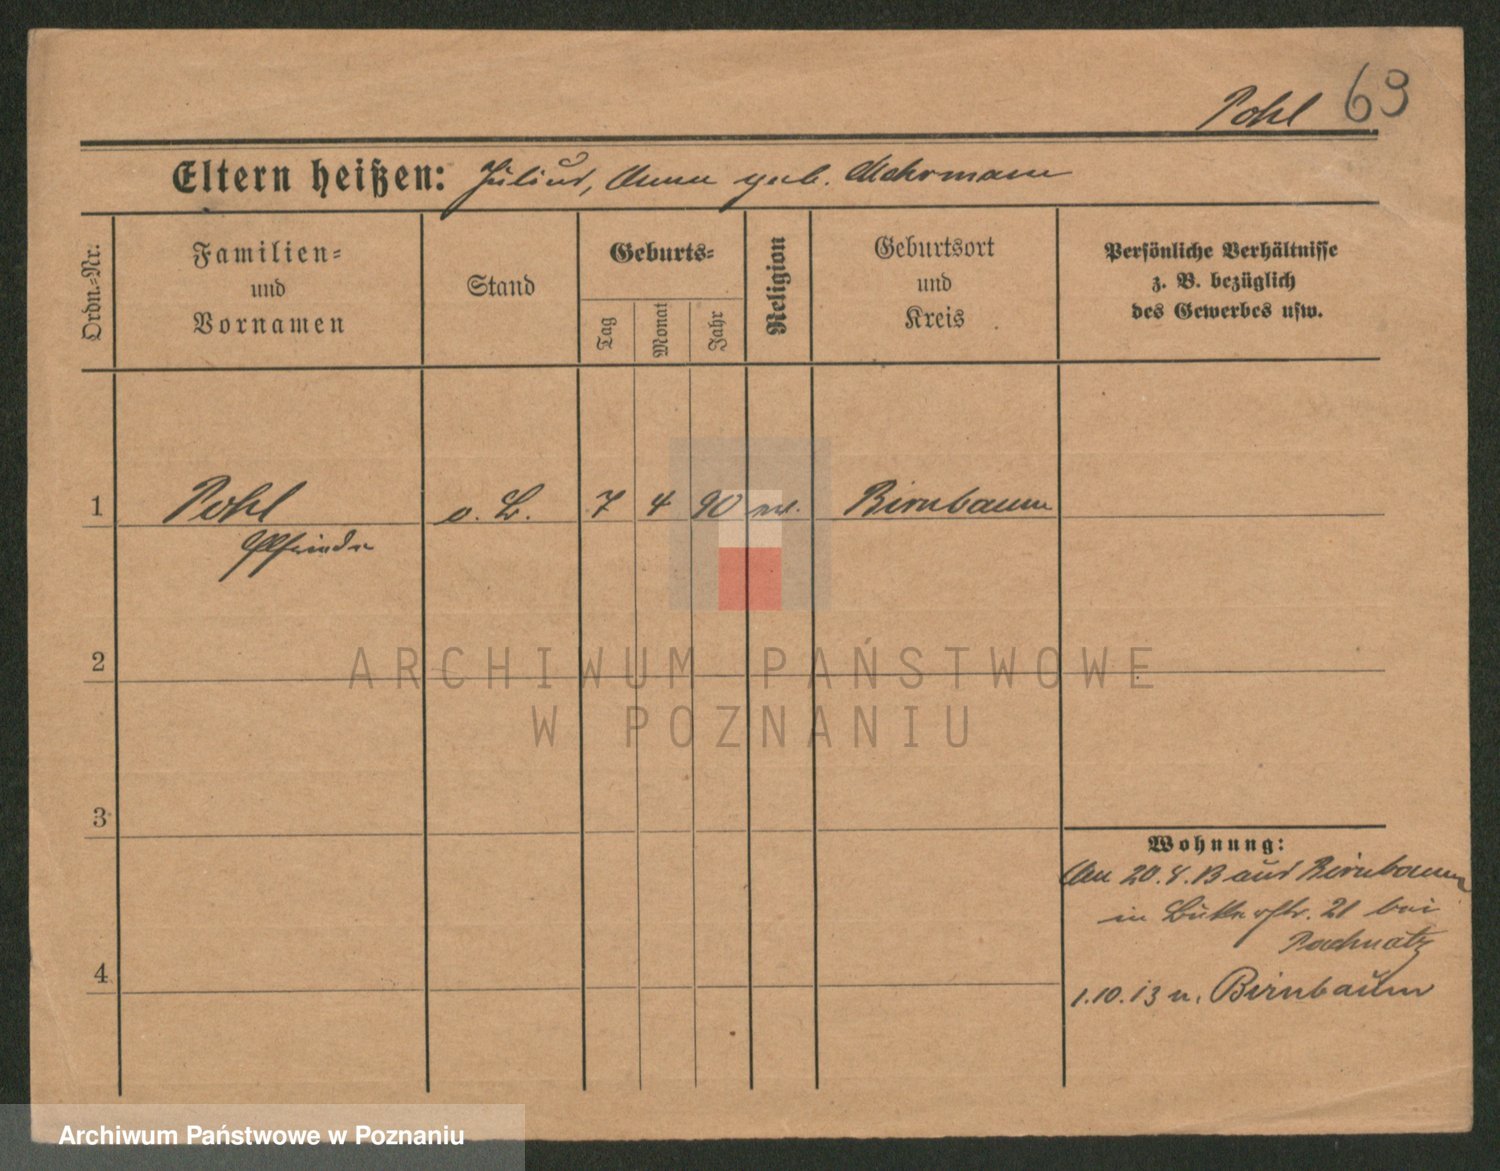 Pohl 69
Eltern heißen: Julius, Anna geb. Mehrmann
Ordn.-Nr.
Familien-
und
Vornamen
Stand
Geburts-
Tag
Monat
Jahr
Religion
Geburtsort
und
Kreis
Persönliche Verhältnisse
z. B. bezüglich
des Gewerbes usw.
1 Pohl o. B. 7 4 90 ev. Birnbaum
Elfriede
2
3
4
Wohnung:
20.4.13 aus Birnbaum
in 21 bei
1.10.13 n. Birnbaum
ARCHIWUM PAŃSTWOWE
W POZNANIU
Archiwum Państwowe w Poznaniu